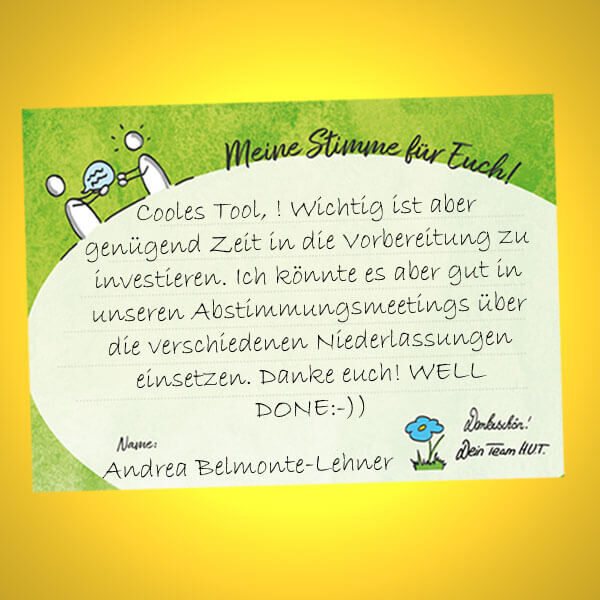 Meine Stimme für Euch!
Cooles Tool, ! Wichtig ist aber
genügend Zeit in die Vorbereitung zu
investieren. Ich könnte es aber gut in
unseren Abstimmungsmeetings über
die verschiedenen Niederlassungen
einsetzen. Danke euch! WELL
DONE:-))
Name:
Andrea Belmonte-Lehner
Dankeschön!
Dein Team HUT.